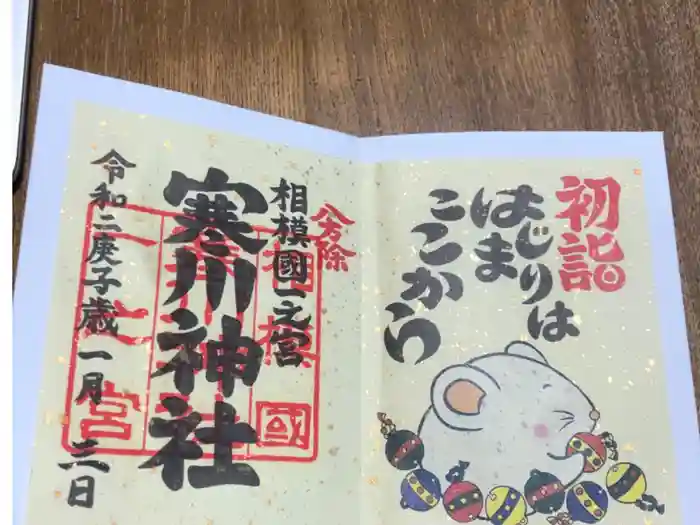 初詣
はじまりは
ここから
八方除
相模國一之宮
寒川神社
令和二庚子歳一月三日
相模國
一之宮